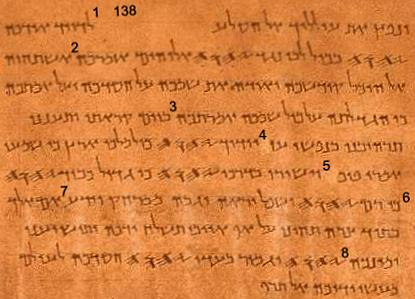 1 138
ונפץ את עולליך אל הסלע לדויד אודכה
2
𐤉𐤄𐤅𐤄 בכול לבי נגד 𐤉𐤄𐤅𐤄 אלוהים אזמרכה אשתחוה
אל היכל קודשכה ואודה את שמכה על חסדכה ועל אמתכה
3
כי הגדלתה על כול שמכה אמרתכה ביום קראתי ותענני
4
תרהיבני בנפשי עוז יודוך 𐤉𐤄𐤅𐤄 כול מלכי ארץ כי שמעו
5
אמרי פיכה וישירו בדרכי 𐤉𐤄𐤅𐤄 כי גדול כבוד 𐤉𐤄𐤅𐤄
6 7
כי רם 𐤉𐤄𐤅𐤄 ושפל יראה וגבה ממרחק יידע אם אלך
בתוך צרה תחיני על אף אויבי תשלח ידכה ותושיעני
8
ימינכה 𐤉𐤄𐤅𐤄 יגמור בעדי 𐤉𐤄𐤅𐤄 חסדכה לעולם
מעשי ידיכה אל תרף